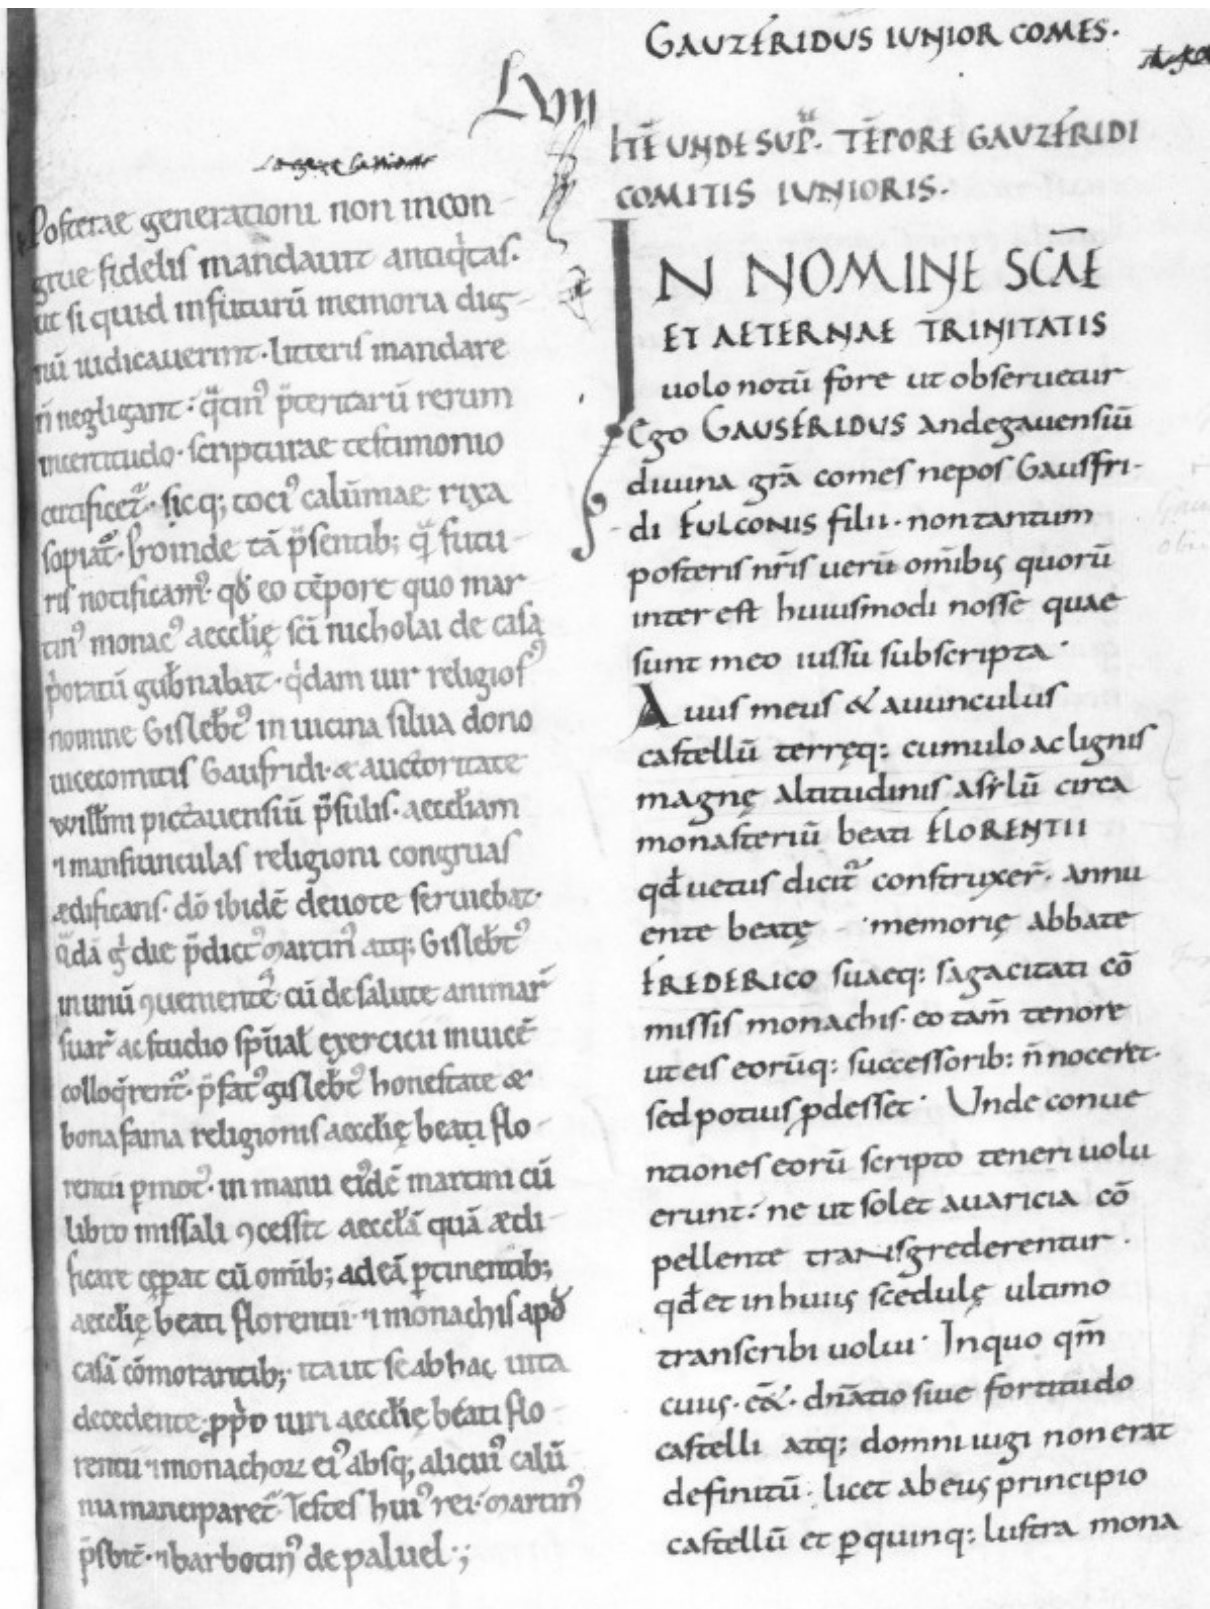 LVIII
Posterae generationi non incon-
grue fidelis mandauit antiq̍tas.
ut si quid in futurū memoria dig-
nū iudicauerint. litteris mandare
n̄ negligant. q̄tinꝰ p̄teritarū rerum
incertitudo. scripturae testimonio
certificet᷑. sicq; tociꝰ calūmae rixa
sopiat᷑. Proinde tā p̄sentib; q̄ futu-
ris notificamꝰ. qđ eo tēpore quo mar-
tinꝰ monacꝰ aeccłię sc̄i nicholai de casa
p̍oratū gub̄nabat. q̍dam uir religiosꝰ
nomine Gisleb̄tꝰ in uicina silua dono
uicecomitis Gaufridi. & auctoritate
wiłłmi pictauensiū p̄sulis. aeccłiam
⁊ mansiunculas religioni congruas
ædificans. dō ibidē deuote seruiebat.
q̄dā g̍ die p̄dictꝰ martinꝰ atq; Gisleb̄tꝰ
in unū ꝯuenientes cū de salute animaꝝ
suaꝝ ac studio sp̄uał exercicii inuicē
colloq̄rent᷑. p̄fatꝰ gisleb̄tꝰ honestate &
bona fama religionis aeccłię beati flo-
rentii ꝑmotꝰ. in manu eiꝰdē martini cū
libro missali ꝯcessit aeccłā quā ædi-
ficare cęperat cū omīb; ad eā ꝑtinentib;
aeccłię beati florentii ⁊ monachis apđ
casā cōmorantib; ita ut se ab hac uita
decedente. ꝓp̍o iuri aeccłię beati flo-
rentii ⁊ monachoꝝ eiꝰ absq; alicuiꝰ calū-
nia manciparet᷑. Testes huiꝰ rei. martinꝰ
p̄sbit̄. ⁊ barbotinꝰ de paluel.;
GAUZFRIDUS IUNIOR COMES.
ITĒ UNDE SUP̄. TĒPORE GAUZFRIDI
COMITIS IUNIORIS.
IN NOMINE SC̄AE
ET AETERNAE TRINITATIS
uolo notū fore ut obseruetur
Ego GAUSFRIDUS andegauensiū
diuina grā comes nepos Gausfri-
di FULCONIS filii. non tantum
posteris nr̄is uerū omībus quorū
inter est huiusmodi nosse quae
sunt meo iussu subscripta.
Auus meus & auunculus
castellū terręq: cumulo ac lignis
magnę altitudinis asylū circa
monasteriū beati FLORENTII
qđ uetus dicit᷑ construxer̄. annu
ente beatę memorię abbate
FREDERICO suaeq: sagacitati cō
missis monachis. eo tam̄ tenore
ut eis eorūq: successorib: n̄ noceret.
sed potius ꝓdesset. Unde conue
ntiones eorū scripto teneri uolu
erunt. ne ut solet auaricia cō
pellente transgrederentur.
qđ et in huiꝰ scedulę ultimo
transcribi uolui. In quo qm̄
cuiꝰ. eēt. dn̄atio siue fortitudo
castelli atq; domni iugi non erat
definitū. licet ab eiꝰ principio
castellū et ꝑ quinq: lustra mona